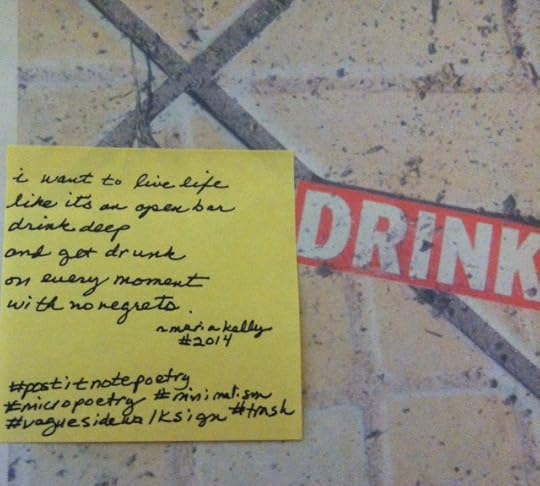 i want to live life
like it's an open bar
drink deep
and get drunk
on every moment
with no regrets.
~ maria kelly
#2014
#postitnotepoetry
#micropoetry #minimalism
#vaguesidewalksign #trash
DRINK